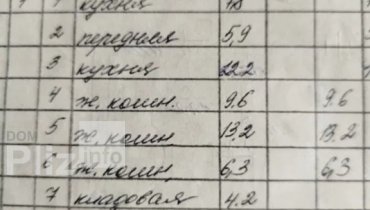 1 кухня
2 передняя 5,9
3 кухня 22.2
4 ж. комн. 9.6 9.6
5 ж. комн 13,2 13,2
6 ж. комн 6,3 6,3
7 кладовая 4.2
DOM
Pliz info